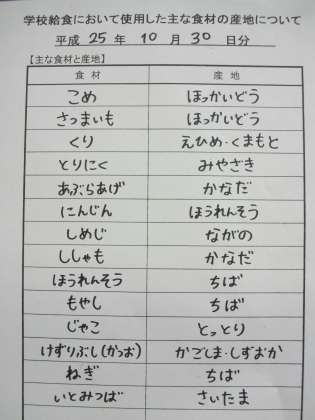 学校給食において使用した主な食材の産地について
平成 25 年 10 月 30 日分
【主な食材と産地】
食材 産地
こめ ほっかいどう
さつまいも ほっかいどう
くり えひめ・くまもと
とりにく みやざき
あぶらあげ かなだ
にんじん ほうれんそう
しめじ ながの
ししゃも かなだ
ほうれんそう ちば
もやし ちば
じゃこ とっとり
けずりぶし(かつお) かごしま・しずおか
ねぎ ちば
いとみつば さいたま